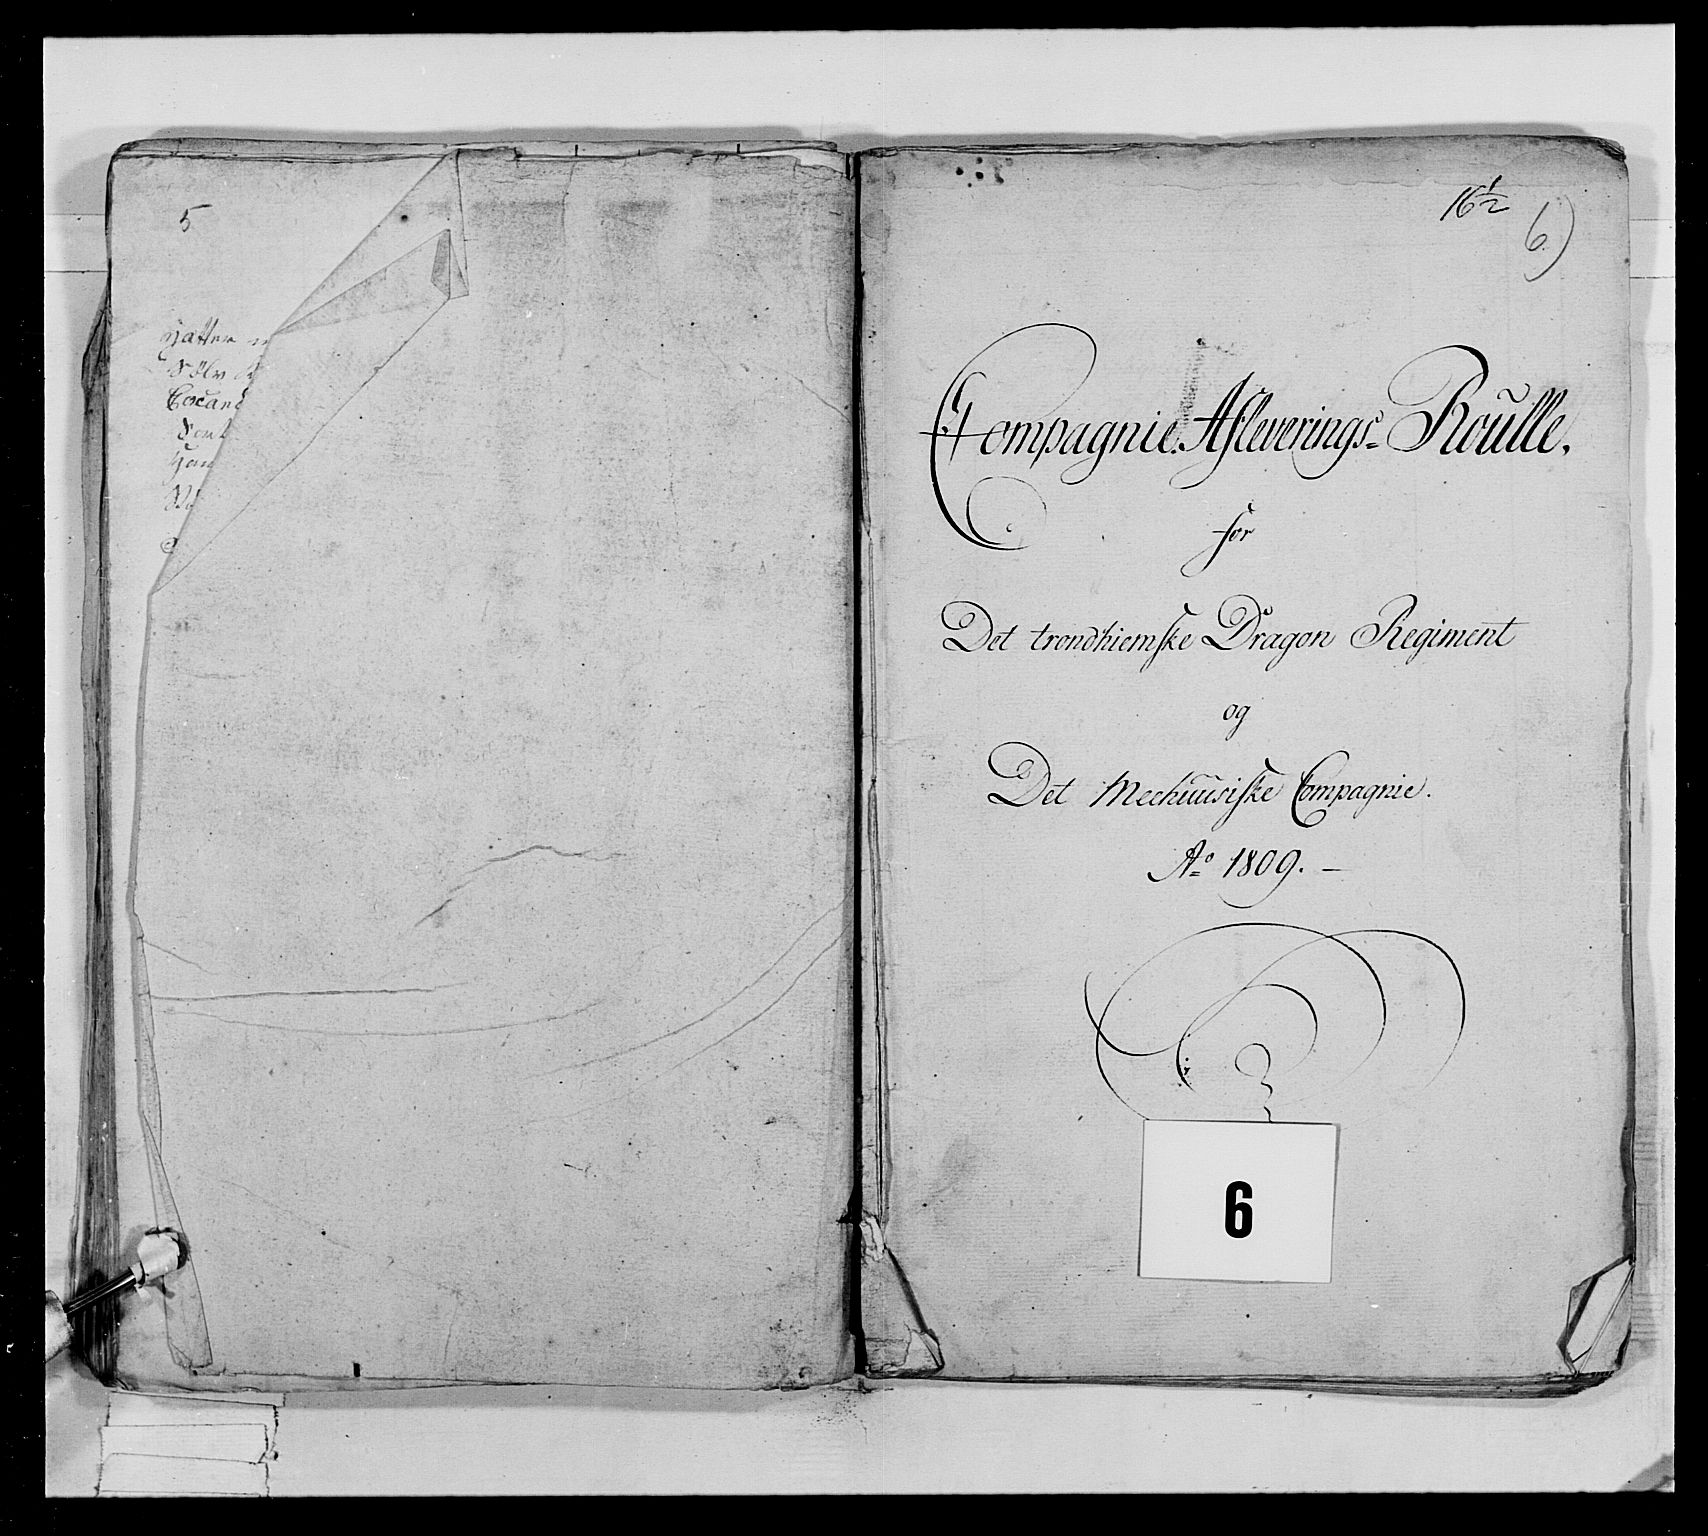 5
Hatter
Sölv
16 1/2
6)
Compagnie Afleverings= Roulle.
for
Det trondhiemske Dragon Regiment
og
Det Meehuusiske Compagnie.
Ao 1809. –
6